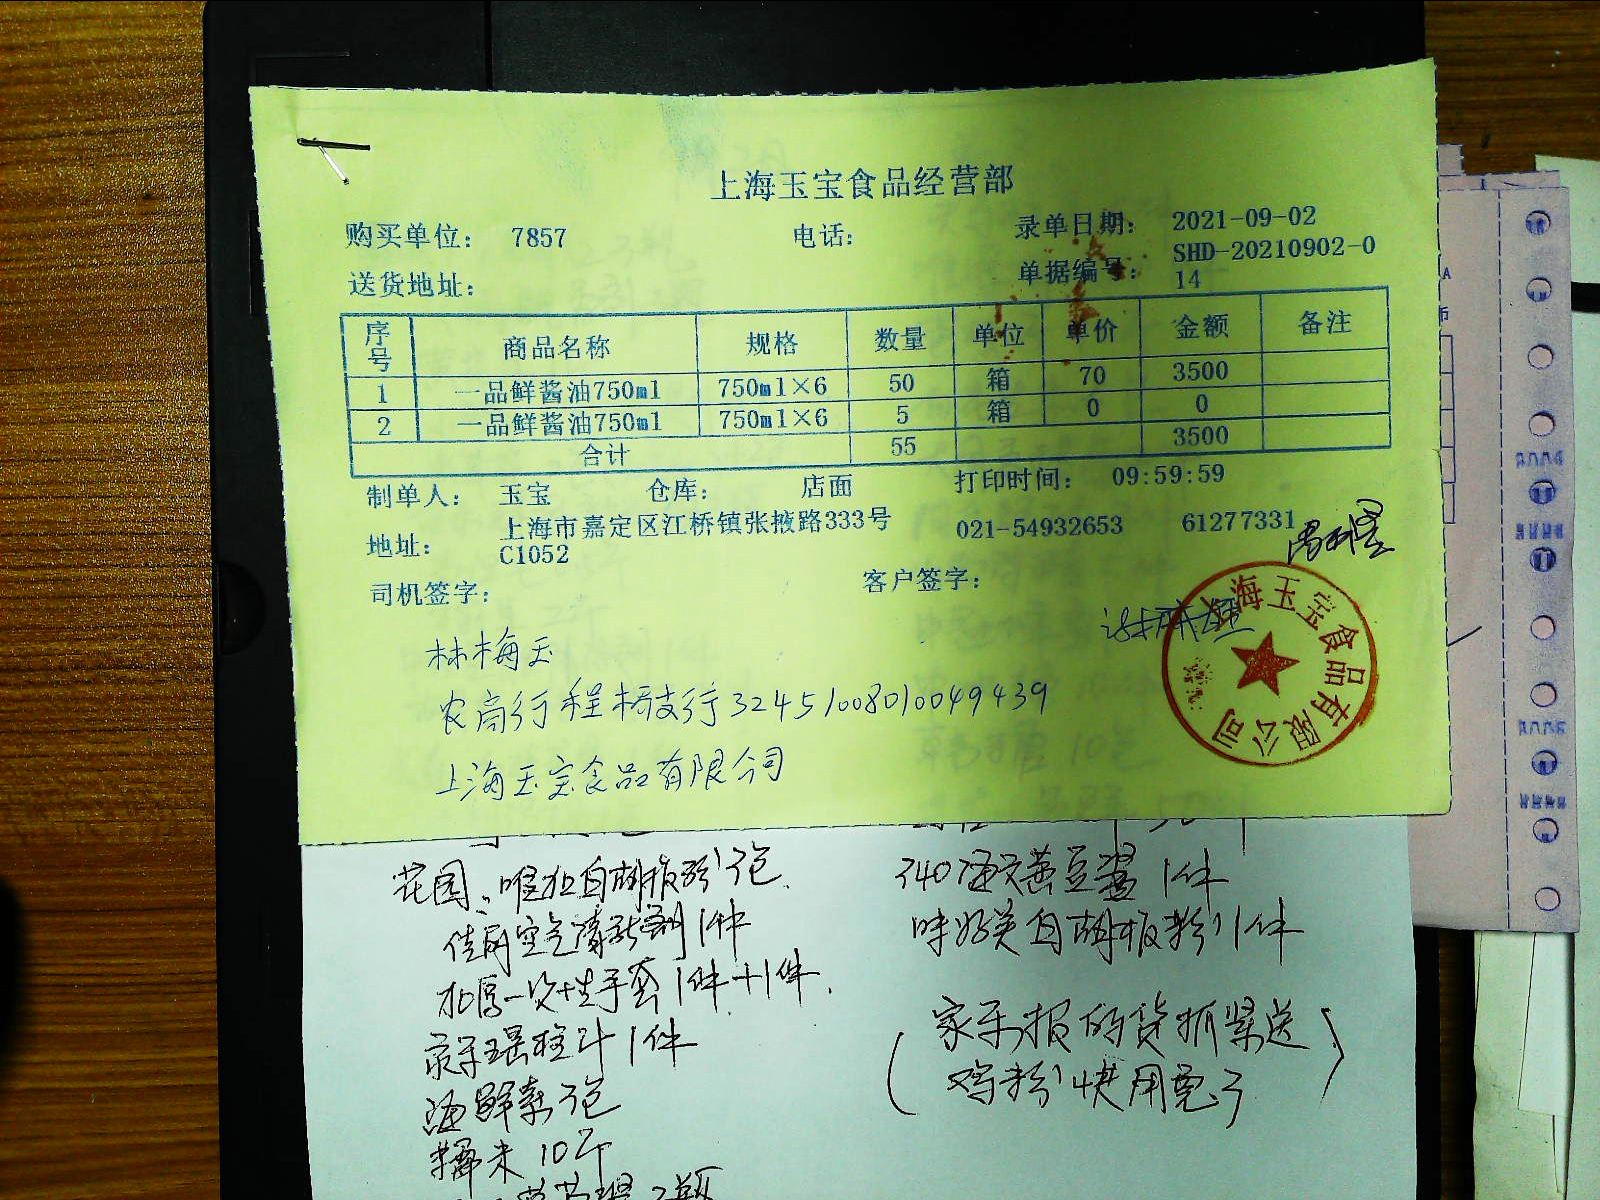 上海玉宝食品经营部
购买单位： 7857 电话： 录单日期： 2021-09-02
送货地址： 单据编号： SHD-20210902-0
14
序号 商品名称 规格 数量 单位 单价 金额 备注
1 一品鲜酱油750ml 750ml×6 50 箱 70 3500
2 一品鲜酱油750ml 750ml×6 5 箱 0 0
合计 55 3500
制单人： 玉宝 仓库： 店面 打印时间： 09:59:59
地址： 上海市嘉定区江桥镇张掖路333号 021-54932653 61277331
C1052
司机签字： 客户签字：
上海玉宝食品有限公司
林梅玉
农商行程桥支行32451008010049439
上海玉宝食品有限公司
花园、味好自胡椒粉3包
佳丽空气清新剂1件
加厚一次性手套1件+1件
1件
海鲜素3包
糯米10斤
340 黄豆酱1件
味好美白胡椒粉1件
（家乐报的货抓紧送
鸡粉快用完了）